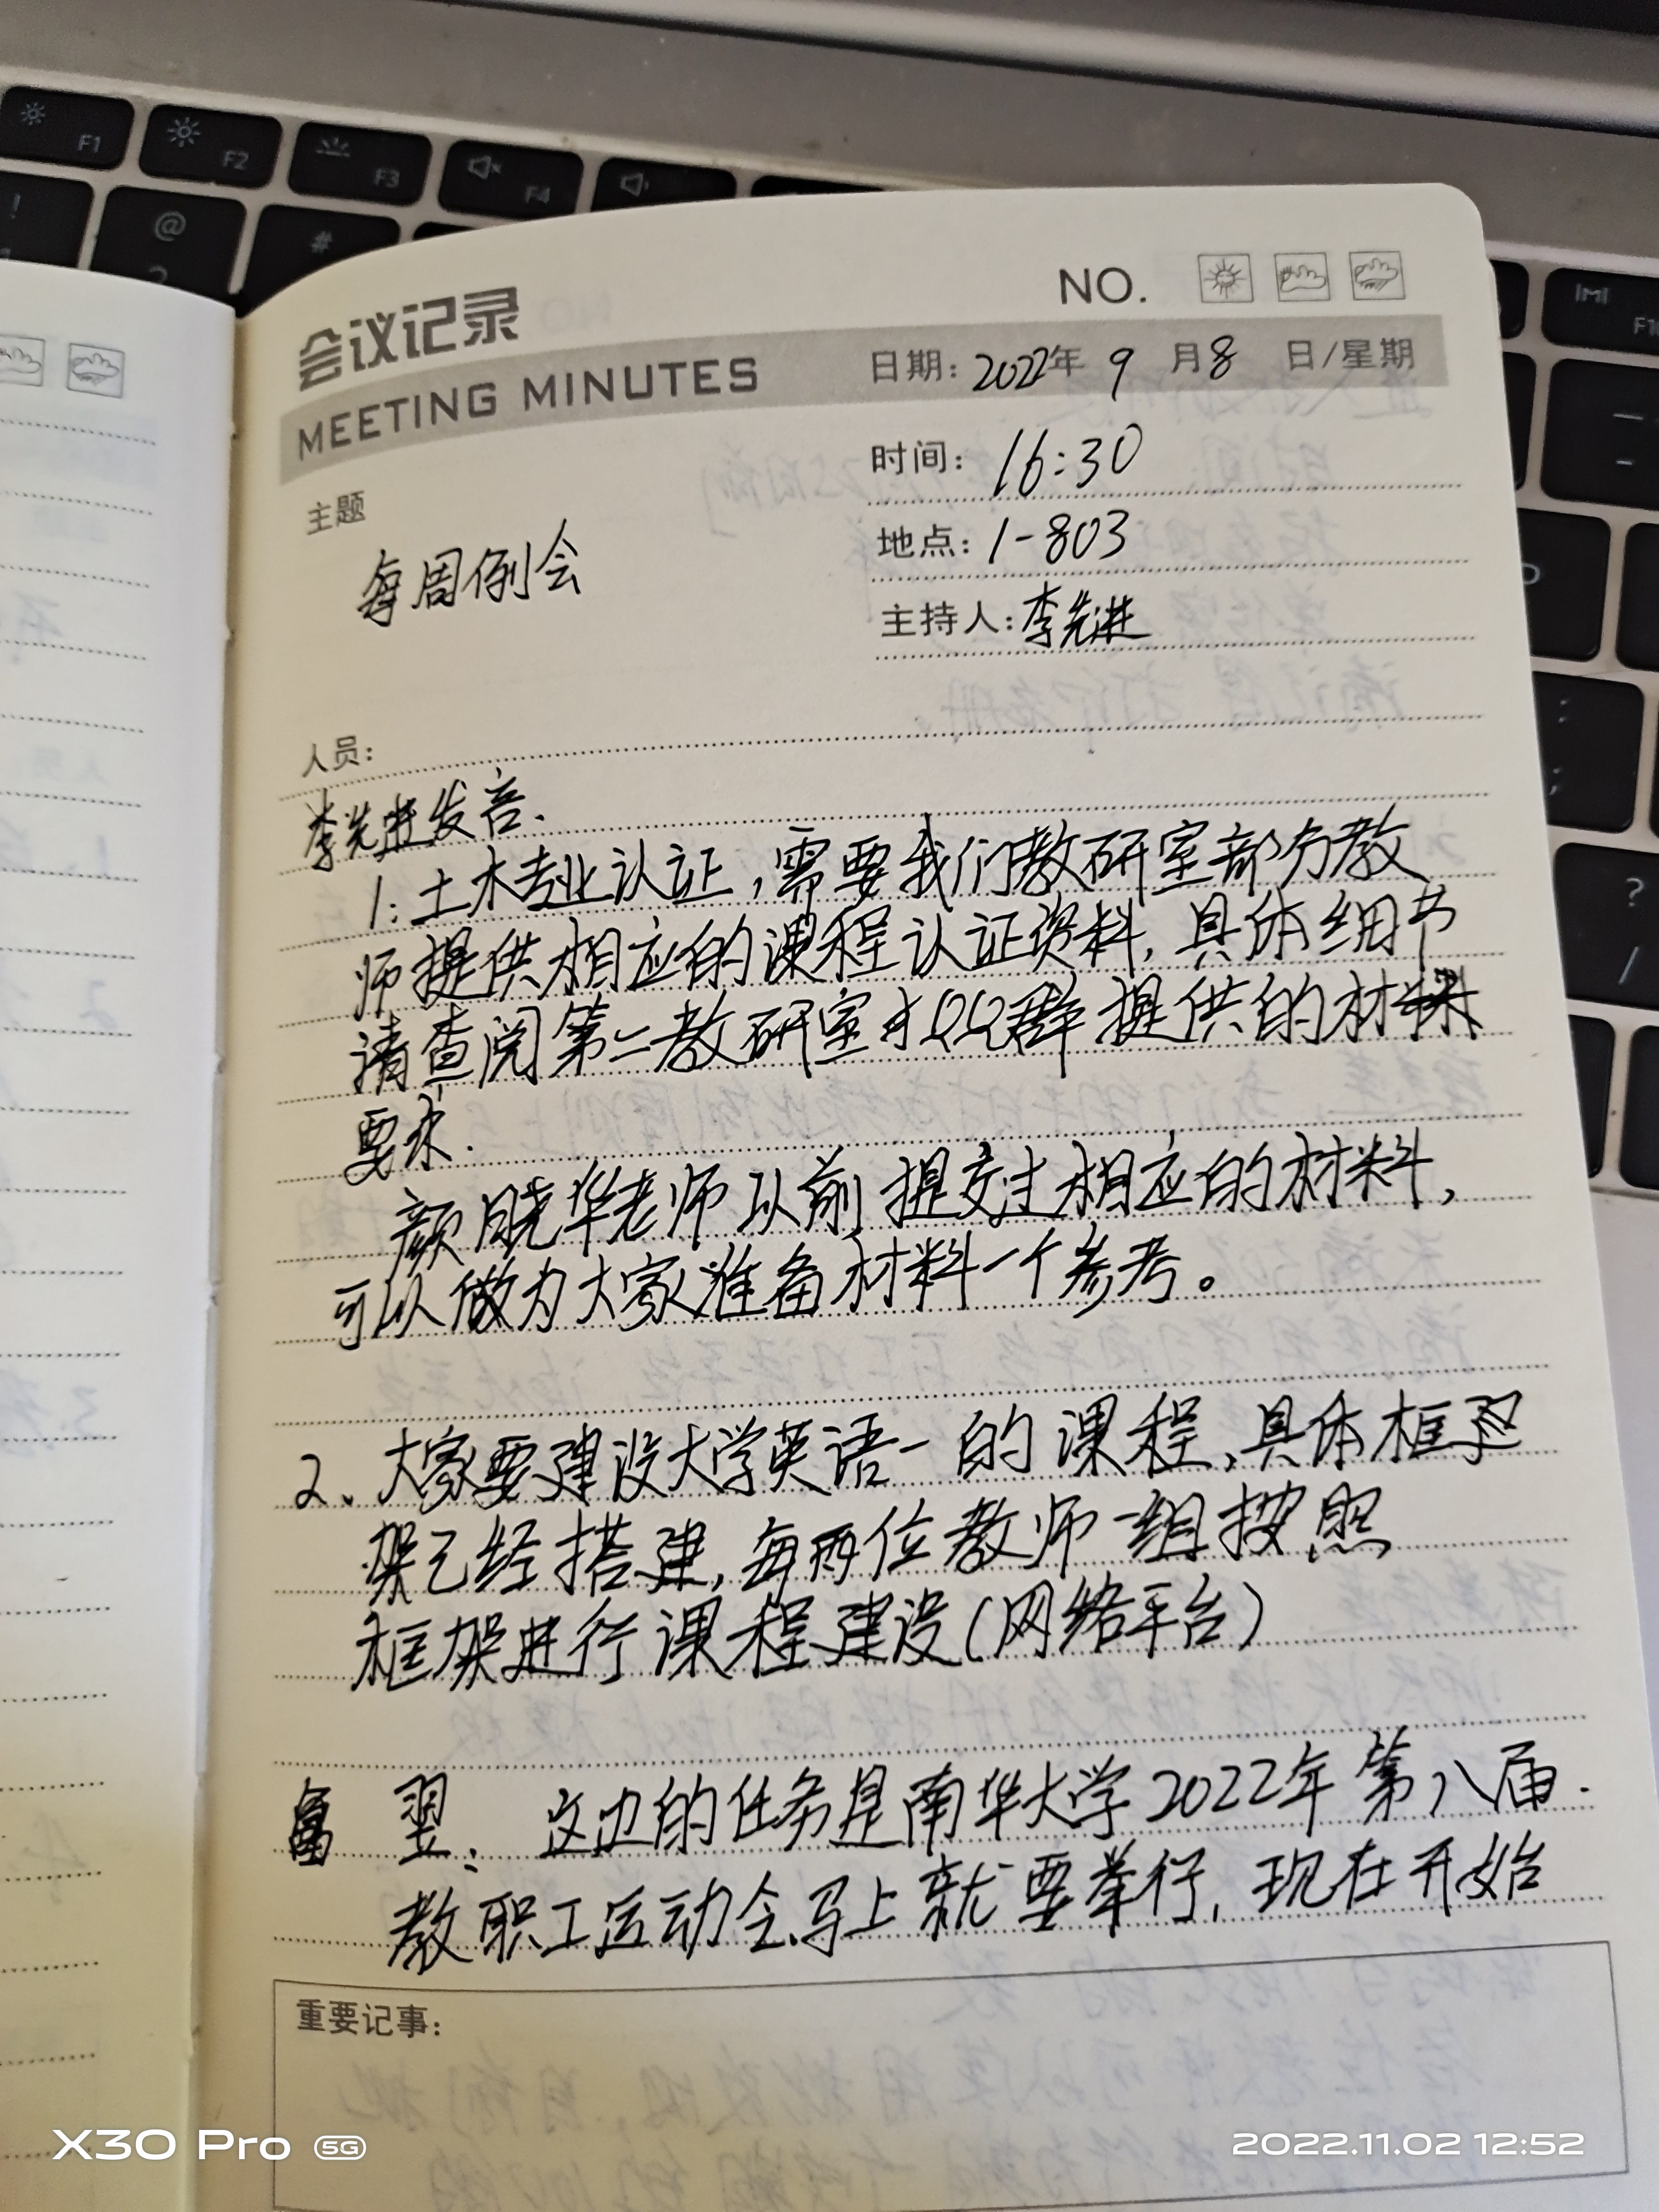 F1
F2
F3
F4
!
@
#
2
F10
?
/
NO.
会议记录
MEETING MINUTES
日期: 2022年 9 月 8 日/星期
时间: 16:30
主题
地点: 1-803
每周例会
主持人: 李先进
人员:
李先进发言.
1: 土木专业认证,需要我们教研室部分教
师提供相应的课程认证资料,具体细节
请查阅第二教研室 QQ群提供的材料
要求.
颜晓华老师以前提交过相应的材料,
可以做为大家准备材料一个参考。
2、大家要建设大学英语一的课程,具体框
架已经搭建,每两位教师一组按照
框架进行课程建设(网络平台)
翌: 这边的任务是南华大学2022年第八届.
教职工运动会马上就要举行,现在开始
重要记事:
X30 Pro 5G
2022.11.02 12:52